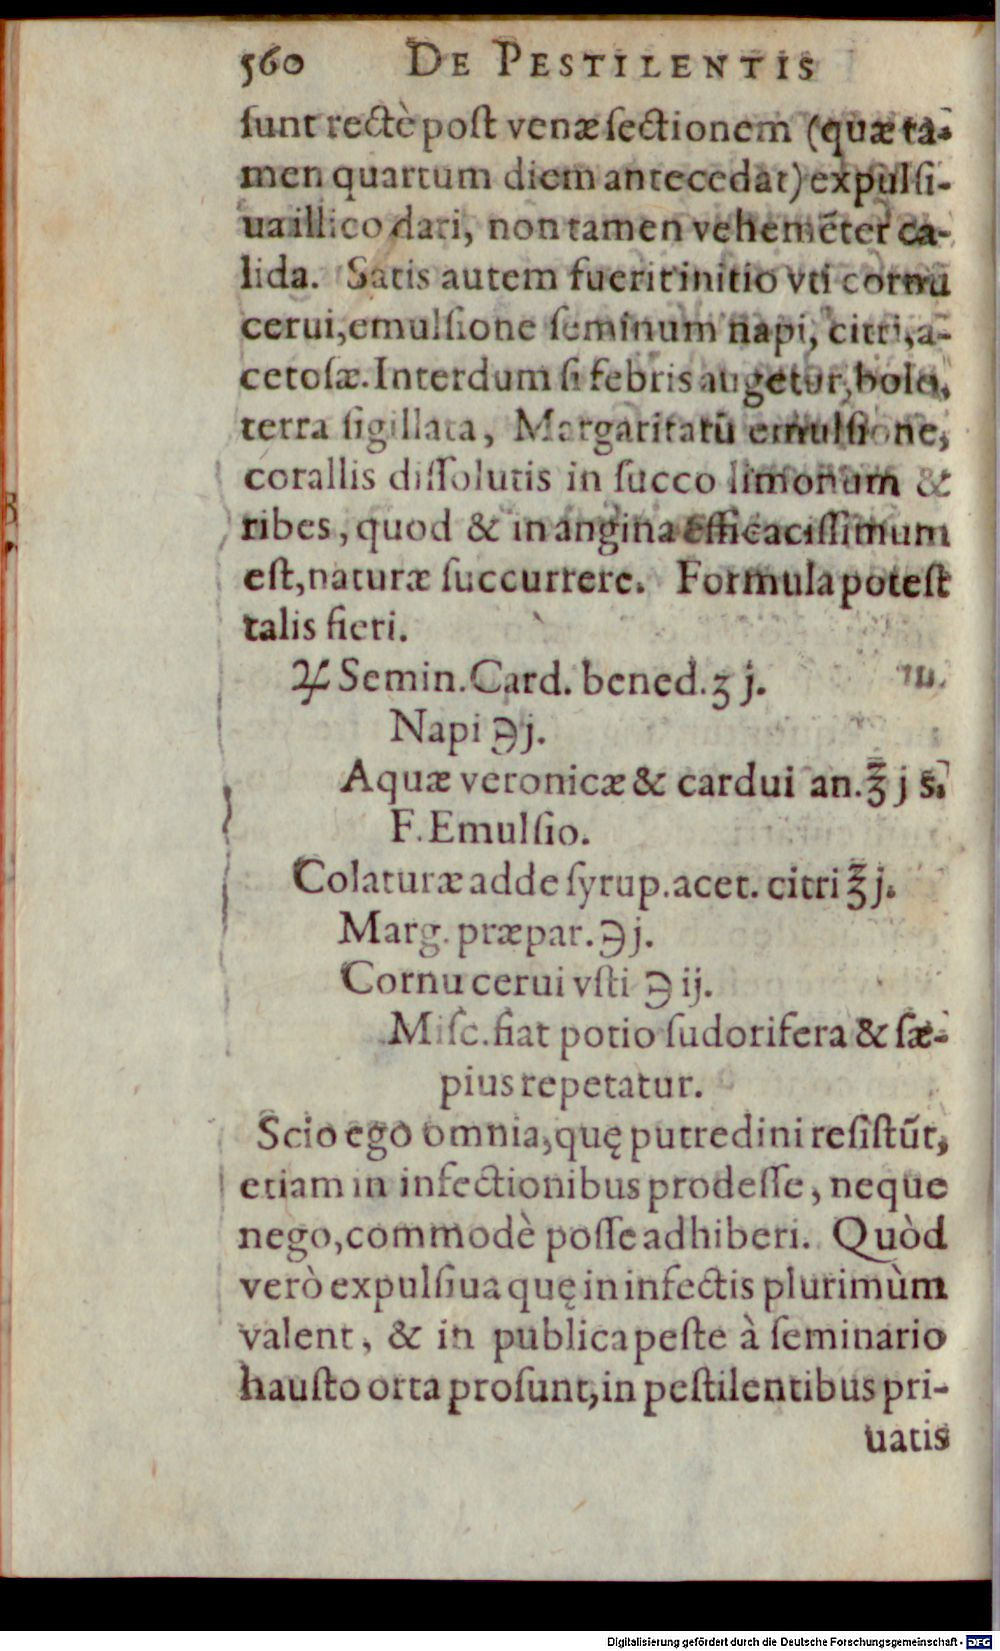 560 DE PESTILENTIS
ſunt rectè poſt venæ ſectionem (quæ ta-
men quartum diem antecedat) expulſi-
ua illico dari, non tamen vehemēter ca-
lida. Satis autem fuerit initio vti cornu
cerui, emulſione ſeminum napi, citri, a-
cetoſæ. Interdum ſi febris augetur, bolo,
terra ſigillata, Margaritarū emulſione,
corallis diſſolutis in ſucco limonum &
ribes, quod & in angina efficaciſſimum
eſt, naturæ ſuccurrere. Formula poteſt
talis fieri.
♃ Semin. Card. bened. ʒ j.
Napi ℈ j.
Aquæ veronicæ & cardui an. ℥ j s̄.
F. Emulſio.
Colaturæ adde ſyrup. acet. citri ℥ j.
Marg. præpar. ℈ j.
Cornu cerui vſti ℈ ij.
Miſc. fiat potio ſudorifera & ſæ-
pius repetatur.
Scio ego omnia, quę putredini reſiſtūt,
etiam in infectionibus prodeſſe, neque
nego, commodè poſſe adhiberi. Quòd
verò expulſiua quę in infectis plurimùm
valent, & in publica peſte à ſeminario
hauſto orta proſunt, in peſtilentibus pri-
uatis
Digitalisierung gefördert durch die Deutsche Forschungsgemeinschaft - DFG